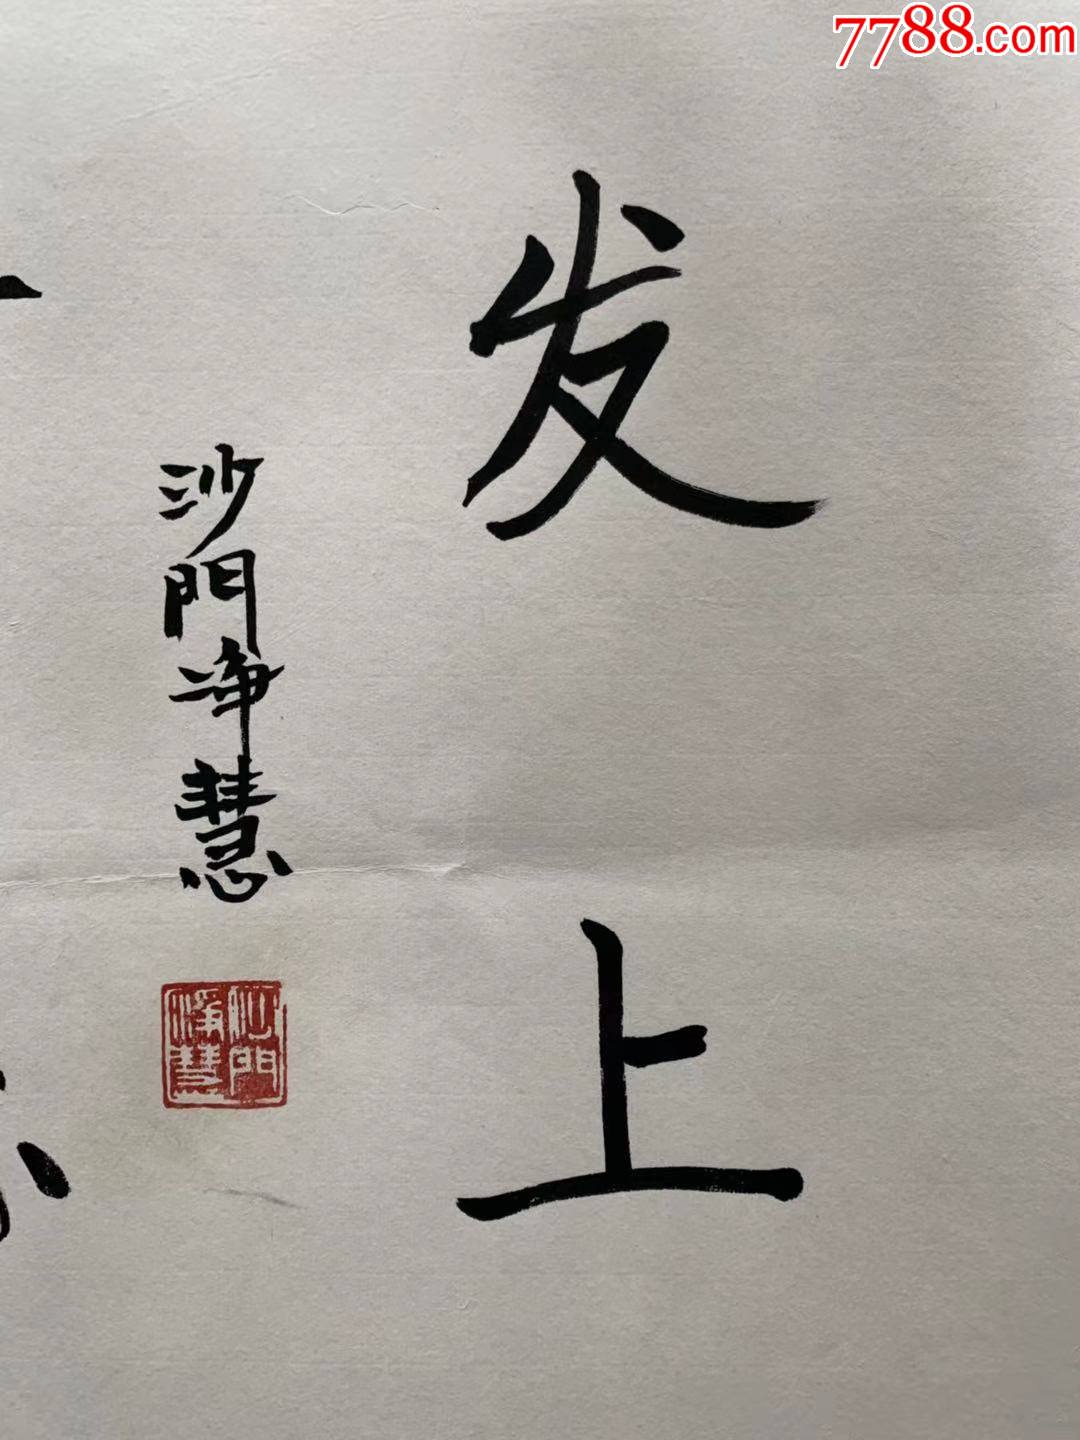 7788.com
发上
沙門净慧
沙門
净慧